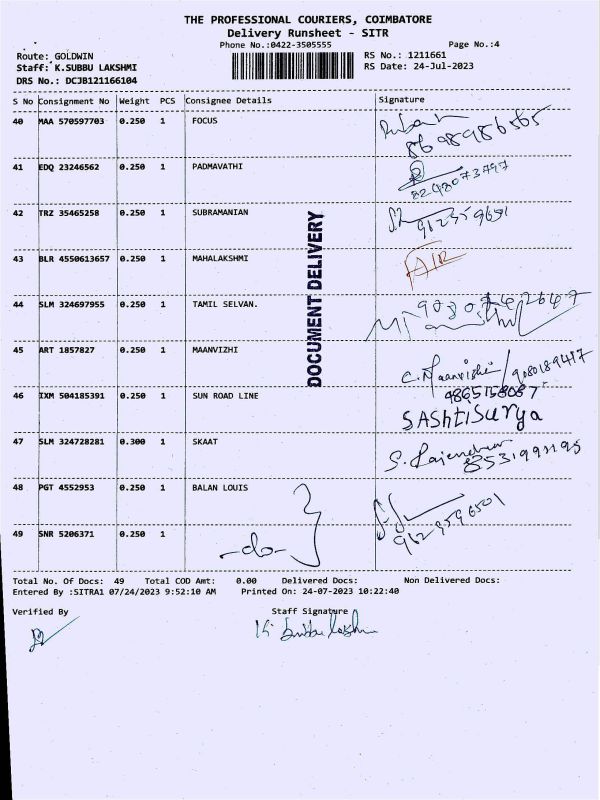 THE PROFESSIONAL COURIERS, COIMBATORE
Delivery Runsheet - SITR
Phone No.:0422-3505555 Page No.:4
Route: GOLDWIN RS No.: 1211661
Staff: K.SUBBU LAKSHMI RS Date: 24-Jul-2023
DRS No.: DCJB121166104
S No Consignment No Weight PCS Consignee Details Signature
40 MAA 570597703 0.250 1 FOCUS
41 EDQ 23246562 0.250 1 PADMAVATHI
42 TRZ 35465258 0.250 1 SUBRAMANIAN
43 BLR 4550613657 0.250 1 MAHALAKSHMI
DOCUMENT DELIVERY
44 SLM 324697955 0.250 1 TAMIL SELVAN.
45 ART 1857827 0.250 1 MAANVIZHI C. Maanvizhi / 9080189417
46 IXM 504185391 0.250 1 SUN ROAD LINE 9865158087
SAshtiSurya
47 SLM 324728281 0.300 1 SKAAT S. Rajendran
48 PGT 4552953 0.250 1 BALAN LOUIS
49 SNR 5206371 0.250 1 -do-
Total No. Of Docs: 49 Total COD Amt: 0.00 Delivered Docs: Non Delivered Docs:
Entered By :SITRA1 07/24/2023 9:52:10 AM Printed On: 24-07-2023 10:22:40
Verified By Staff Signature
K. Subbu Lakshmi